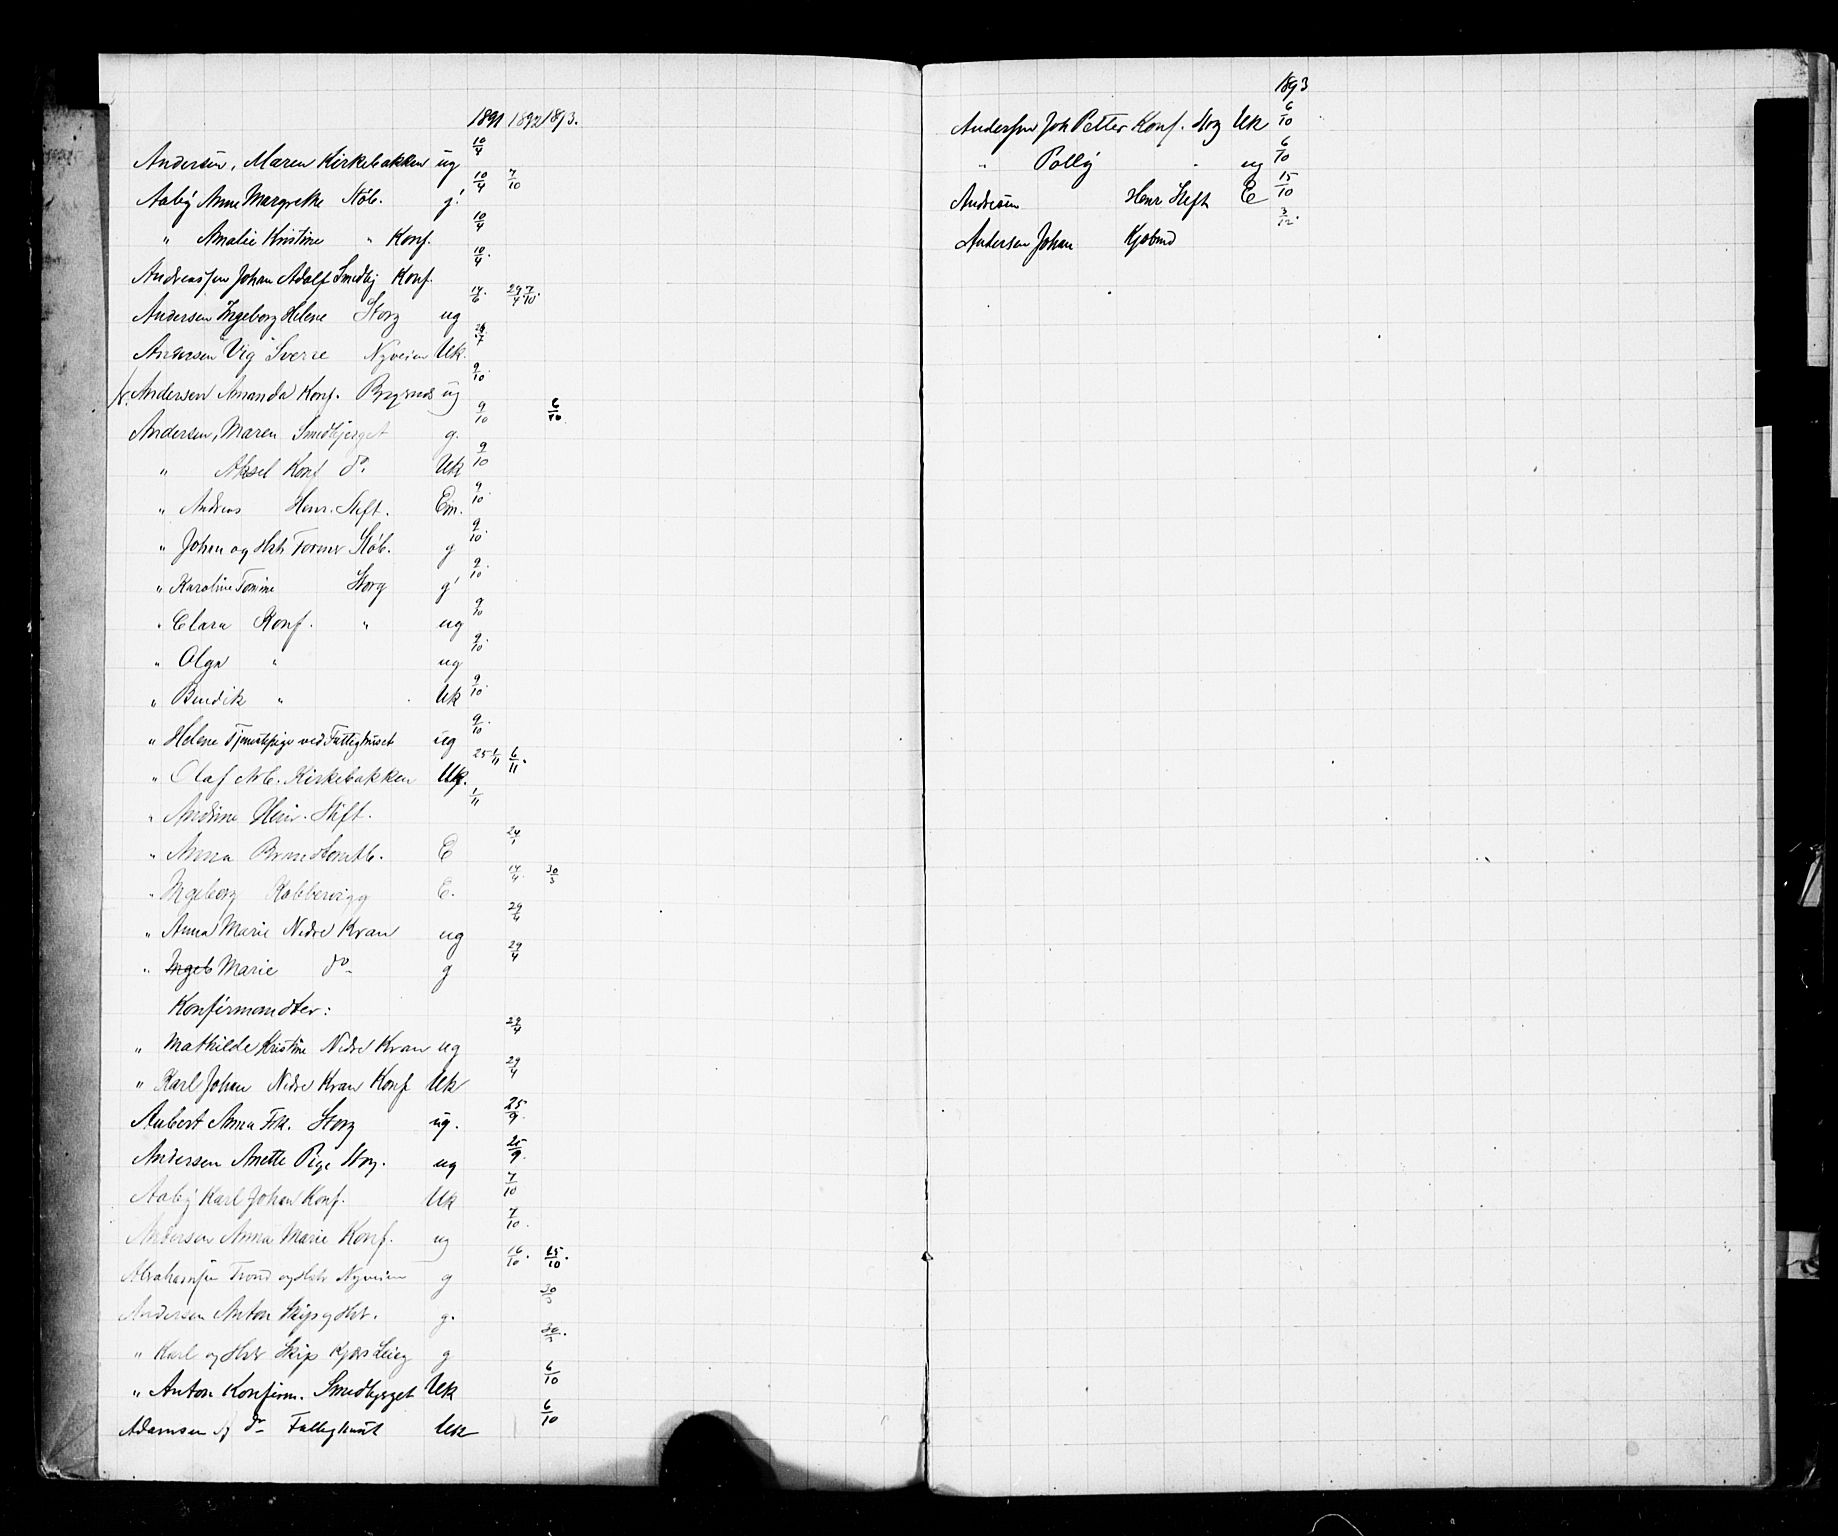 1891 1892 1893.
Andersen, Maren Kirkebakken ug 10/4
Aaby Anne Margrethe Støb. g. 10/4 7/10
" Amalie Kristine " Konf. 10/4
Andreassen Johan Adolf Smedbj Konf. 10/4
Andersen Ingeborg Helene Storg ug 14/6 29/4 7/10
Andersen Vig Sverre Nyveien Uk.
Andersen Amanda Konf. ug 9/10
Andersen, Maren Smedbjerget g. 9/10 6/10
" Aksel Konf do. Uk 9/10
" Andreas Henr. Stift. Em. 9/10
" Johan og Hst Støb. g 9/10
" Karoline Tomine Storg g 9/10
" Clara Konf. " ug 9/10
" Olga " ug 9/10
" Bendik " Uk 9/10
" Helene Tjenestpige ved Fattighuset ug 9/10
" Olaf Arb. Kirkebakken Uk. 6/11
" Andrine Henr. Stift. 1/11
" Anna E 24/1
" Ingeborg Kobbervigg E. 14/4 30/3
" Anna Marie Nedre Kran ug 29/4
" Ingeb Marie do g 29/4
Konfirmandter:
" Mathilde Kristine Nedre Kran ug 29/4
" Karl Johan Nedre Kran Konf Uk 29/4
Aubert Anna Frk. Storg ug. 25/9
Andersen Anette Pige Storg. ug 25/9
Aaby Karl Johan Konf. Uk 7/10
Andersen Anna Marie Konf. ug 7/10
Abrahamsen Trond og Hst Nyveien g 16/10 15/10
Andersen Anton Skip og Hst. g. 30/3
" Karl og Hst Skip g 30/3
" Anton Konfirm. Smedbjerget Uk 6/10
Adamsen do Fattighuset Uk 6/10
1893
Andersen Joh Petter Konf. Storg Uk 6/10
" Polly " ug 6/10
Andresen Henr Stift E 15/10
Andersen Johan Kjøbmd 3/12